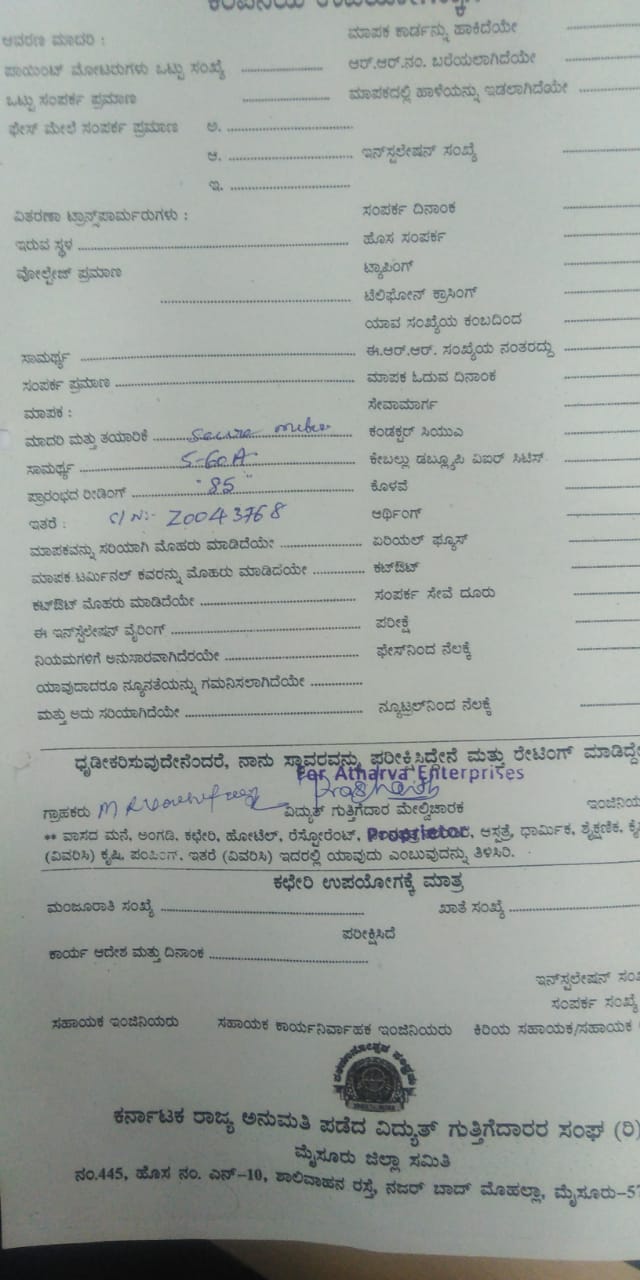 ಆವರಣ ಮಾದರಿ :
ಮಾಪಕ ಕಾರ್ಡನ್ನು ಹಾಕಿದೆಯೇ
ಪಾಯಿಂಟ್ ಮೋಟರುಗಳು ಒಟ್ಟು ಸಂಖ್ಯೆ ..................
ಆರ್.ಆರ್.ನಂ. ಬರೆಯಲಾಗಿದೆಯೇ ..................
ಒಟ್ಟು ಸಂಪರ್ಕ ಪ್ರಮಾಣ ..................
ಮಾಪಕದಲ್ಲಿ ಹಾಳೆಯನ್ನು ಇಡಲಾಗಿದೆಯೇ ..................
ಫೇಸ್ ಮೇಲೆ ಸಂಪರ್ಕ ಪ್ರಮಾಣ ಅ. ..................
ಆ. ..................
ಇನ್‌ಸ್ಟಲೇಷನ್ ಸಂಖ್ಯೆ ..................
ಇ. ..................
ವಿತರಣಾ ಟ್ರಾನ್ಸ್‌ಪಾರ್ಮರುಗಳು :
ಸಂಪರ್ಕ ದಿನಾಂಕ ..................
ಇರುವ ಸ್ಥಳ ..................
ಹೊಸ ಸಂಪರ್ಕ ..................
ವೋಲ್ಟೇಜ್ ಪ್ರಮಾಣ
ಟ್ಯಾಪಿಂಗ್ ..................
..................
ಟೆಲಿಫೋನ್ ಕ್ರಾಸಿಂಗ್ ..................
ಯಾವ ಸಂಖ್ಯೆಯ ಕಂಬದಿಂದ ..................
ಸಾಮರ್ಥ್ಯ ..................
ಈ.ಆರ್.ಆರ್. ಸಂಖ್ಯೆಯ ನಂತರದ್ದು ..................
ಸಂಪರ್ಕ ಪ್ರಮಾಣ ..................
ಮಾಪಕ ಓದುವ ದಿನಾಂಕ ..................
ಮಾಪಕ :
ಸೇವಾಮಾರ್ಗ ..................
ಮಾದರಿ ಮತ್ತು ತಯಾರಿಕೆ Secure meter
ಕಂಡಕ್ಟರ್ ಸಿಯುಎ ..................
ಸಾಮರ್ಥ್ಯ 5-60A
ಕೇಬಲ್ಲು ಡಬ್ಲ್ಯೂಪಿ ವಿಐಆರ್ ಸಿಟಿಸ್ ..................
ಪ್ರಾರಂಭದ ರೀಡಿಂಗ್ "85"
ಕೊಳವೆ ..................
ಇತರೆ : Z0043768
ಆರ್ಥಿಂಗ್ ..................
ಮಾಪಕವನ್ನು ಸರಿಯಾಗಿ ಮೊಹರು ಮಾಡಿದೆಯೇ ..................
ಏರಿಯಲ್ ಫ್ಯೂಸ್ ..................
ಮಾಪಕ ಟರ್ಮಿನಲ್ ಕವರನ್ನು ಮೊಹರು ಮಾಡಿದೆಯೇ ..................
ಕಟ್‌ಔಟ್ ..................
ಕಟ್‌ಔಟ್ ಮೊಹರು ಮಾಡಿದೆಯೇ ..................
ಸಂಪರ್ಕ ಸೇವೆ ದೂರು ..................
ಈ ಇನ್‌ಸ್ಟೆಲೇಷನ್ ವೈರಿಂಗ್ ..................
ಪರೀಕ್ಷೆ ..................
ನಿಯಮಗಳಿಗೆ ಅನುಸಾರವಾಗಿದೆರಯೇ ..................
ಫೇಸ್‌ನಿಂದ ನೆಲಕ್ಕೆ ..................
ಯಾವುದಾದರೂ ನ್ಯೂನತೆಯನ್ನು ಗಮನಿಸಲಾಗಿದೆಯೇ ..................
ಮತ್ತು ಅದು ಸರಿಯಾಗಿದೆಯೇ ..................
ನ್ಯೂಟ್ರಲ್‌ನಿಂದ ನೆಲಕ್ಕೆ ..................
ಧೃಡೀಕರಿಸುವುದೇನೆಂದರೆ, ನಾನು ಸ್ಥಾವರವನ್ನು ಪರೀಕ್ಷಿಸಿದ್ದೇನೆ ಮತ್ತು ರೇಟಿಂಗ್
For Atharva Enterprises
ಗ್ರಾಹಕರು
ವಿದ್ಯುತ್ ಗುತ್ತಿಗೆದಾರ ಮೇಲ್ವಿಚಾರಕ
** ವಾಸದ ಮನೆ, ಅಂಗಡಿ, ಕಛೇರಿ, ಹೋಟೆಲ್, ರೆಸ್ಟೋರೆಂಟ್, ಆಸ್ಪತ್ರೆ, ಧಾರ್ಮಿಕ, ಶೈಕ್ಷಣಿಕ,
Proprietor
(ವಿವರಿಸಿ) ಕೃಷಿ, ಪಂಪಿಂಗ್, ಇತರೆ (ವಿವರಿಸಿ) ಇದರಲ್ಲಿ ಯಾವುದು ಎಂಬುವುದನ್ನು ತಿಳಿಸಿರಿ.
ಕಛೇರಿ ಉಪಯೋಗಕ್ಕೆ ಮಾತ್ರ
ಮಂಜೂರಾತಿ ಸಂಖ್ಯೆ ..................
ಖಾತೆ ಸಂಖ್ಯೆ ..................
ಪರೀಕ್ಷಿಸಿದೆ
ಕಾರ್ಯ ಆದೇಶ ಮತ್ತು ದಿನಾಂಕ ..................
ಇನ್‌ಸ್ಟಲೇಷನ್
ಸಂಪರ್ಕ ಸಂಖ್ಯೆ
ಸಹಾಯಕ ಇಂಜಿನಿಯರು ಸಹಾಯಕ ಕಾರ್ಯನಿರ್ವಾಹಕ ಇಂಜಿನಿಯರು ಕಿರಿಯ ಸಹಾಯಕ/ಸಹಾಯಕ
ಕರ್ನಾಟಕ ರಾಜ್ಯ ಅನುಮತಿ ಪಡೆದ ವಿದ್ಯುತ್ ಗುತ್ತಿಗೆದಾರರ ಸಂಘ (ರಿ)
ಮೈಸೂರು ಜಿಲ್ಲಾ ಸಮಿತಿ
ನಂ.445, ಹೊಸ ನಂ. ಎನ್-10, ಶಾಲಿವಾಹನ ರಸ್ತೆ, ನಜರ್ ಬಾದ್ ಮೊಹಲ್ಲಾ, ಮೈಸೂರು-57